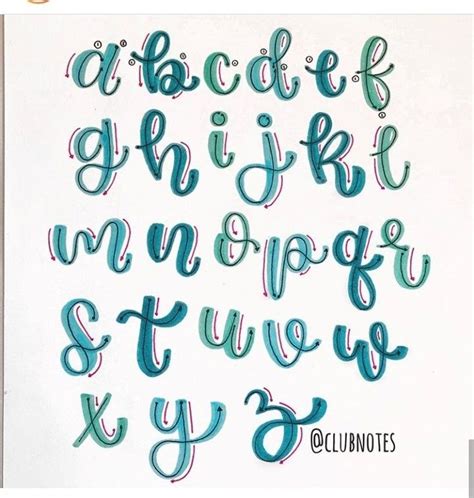 a b c d e f
g h i j k l
m n o p q r
s t u v w
x y z @CLUBNOTES